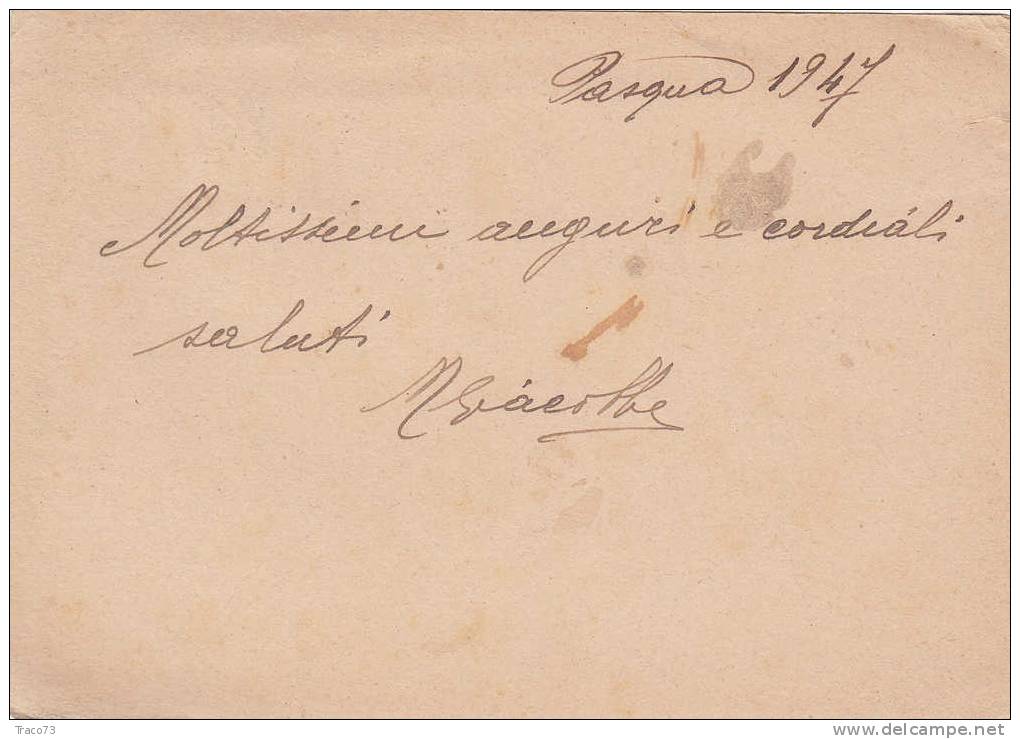 Pasqua 1947
Moltissimi auguri e cordiali
saluti
M Giacobbe
Traco73
delcampe.net